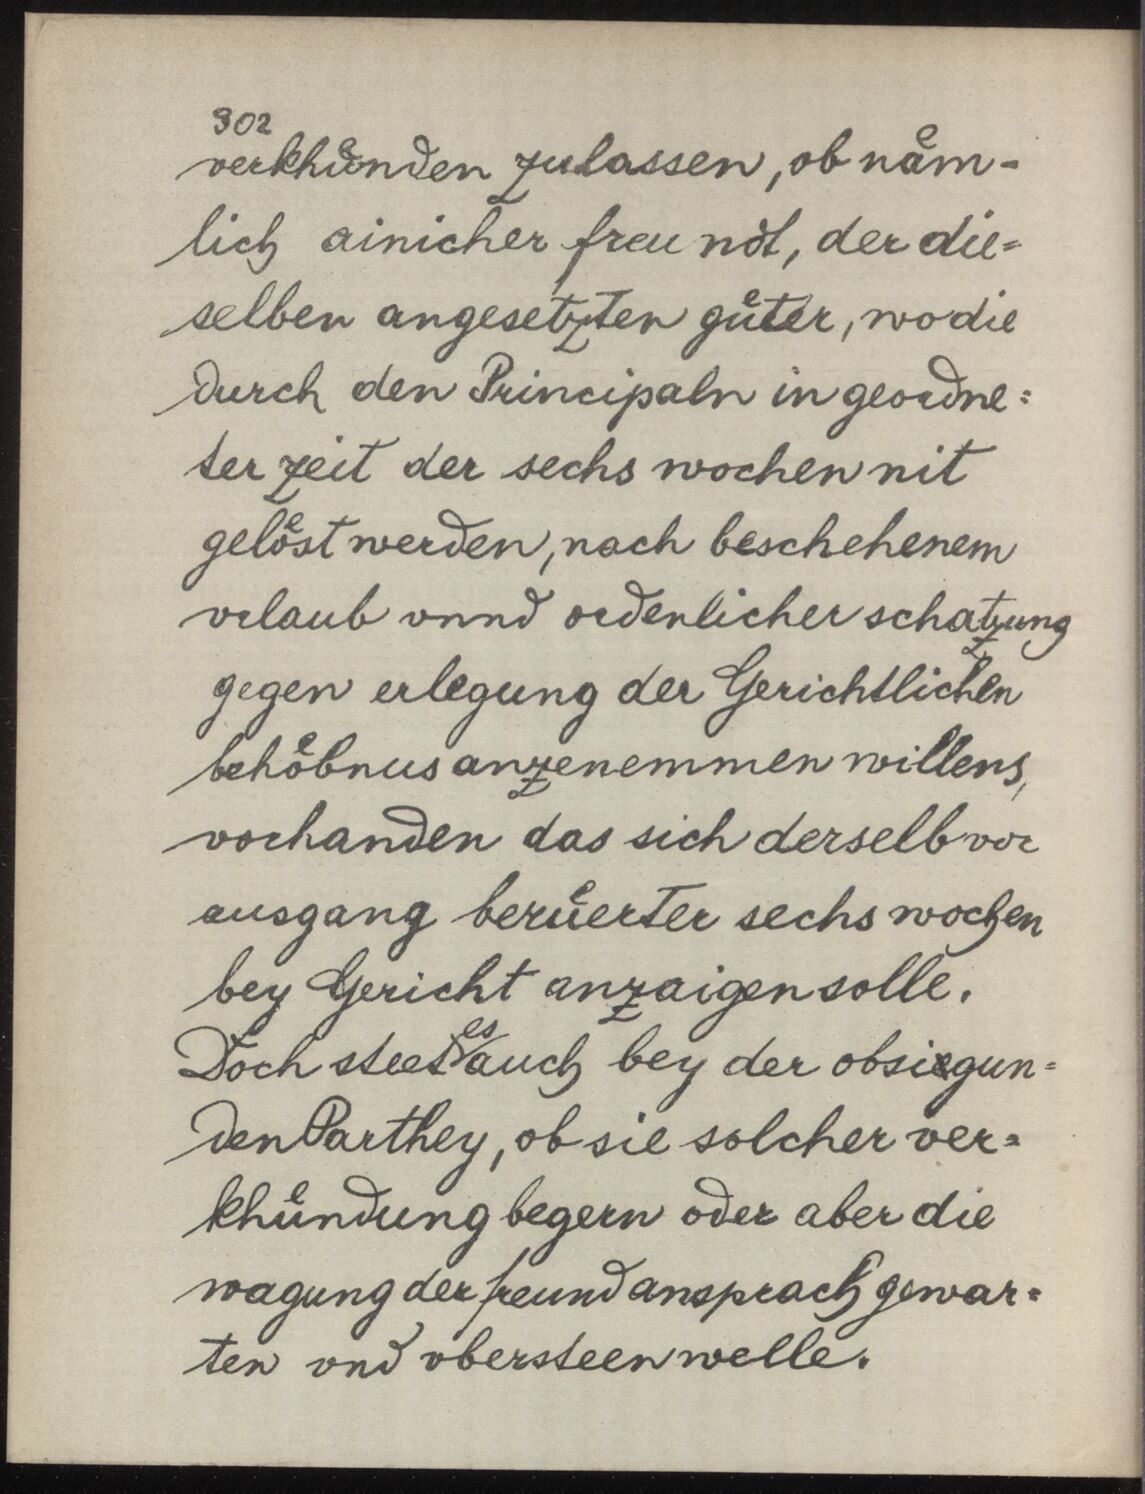 302
verkhuͤnden zulassen, ob naͤm-
lich ainicher freundt, der die=
selben angesetzten guͤter, wo die
durch den Principaln in geordne=
ter zeit der sechs wochen nit
geloͤst werden, nach beschehenem
vrlaub vnnd ordenlicher schatzung
gegen erlegung der Gerichtlichen
behoͤbnus anzenemmen willens,
vorhanden das sich derselb vor
ausgang beruͤerter sechs wochen
bey Gericht anzaigen solle.
Doch steet es auch bey der obsiegun=
den Parthey, ob sie solcher ver=
khuͤndung begern oder aber die
wagung der freund ansprach gewar=
ten vnd vbersteen welle.